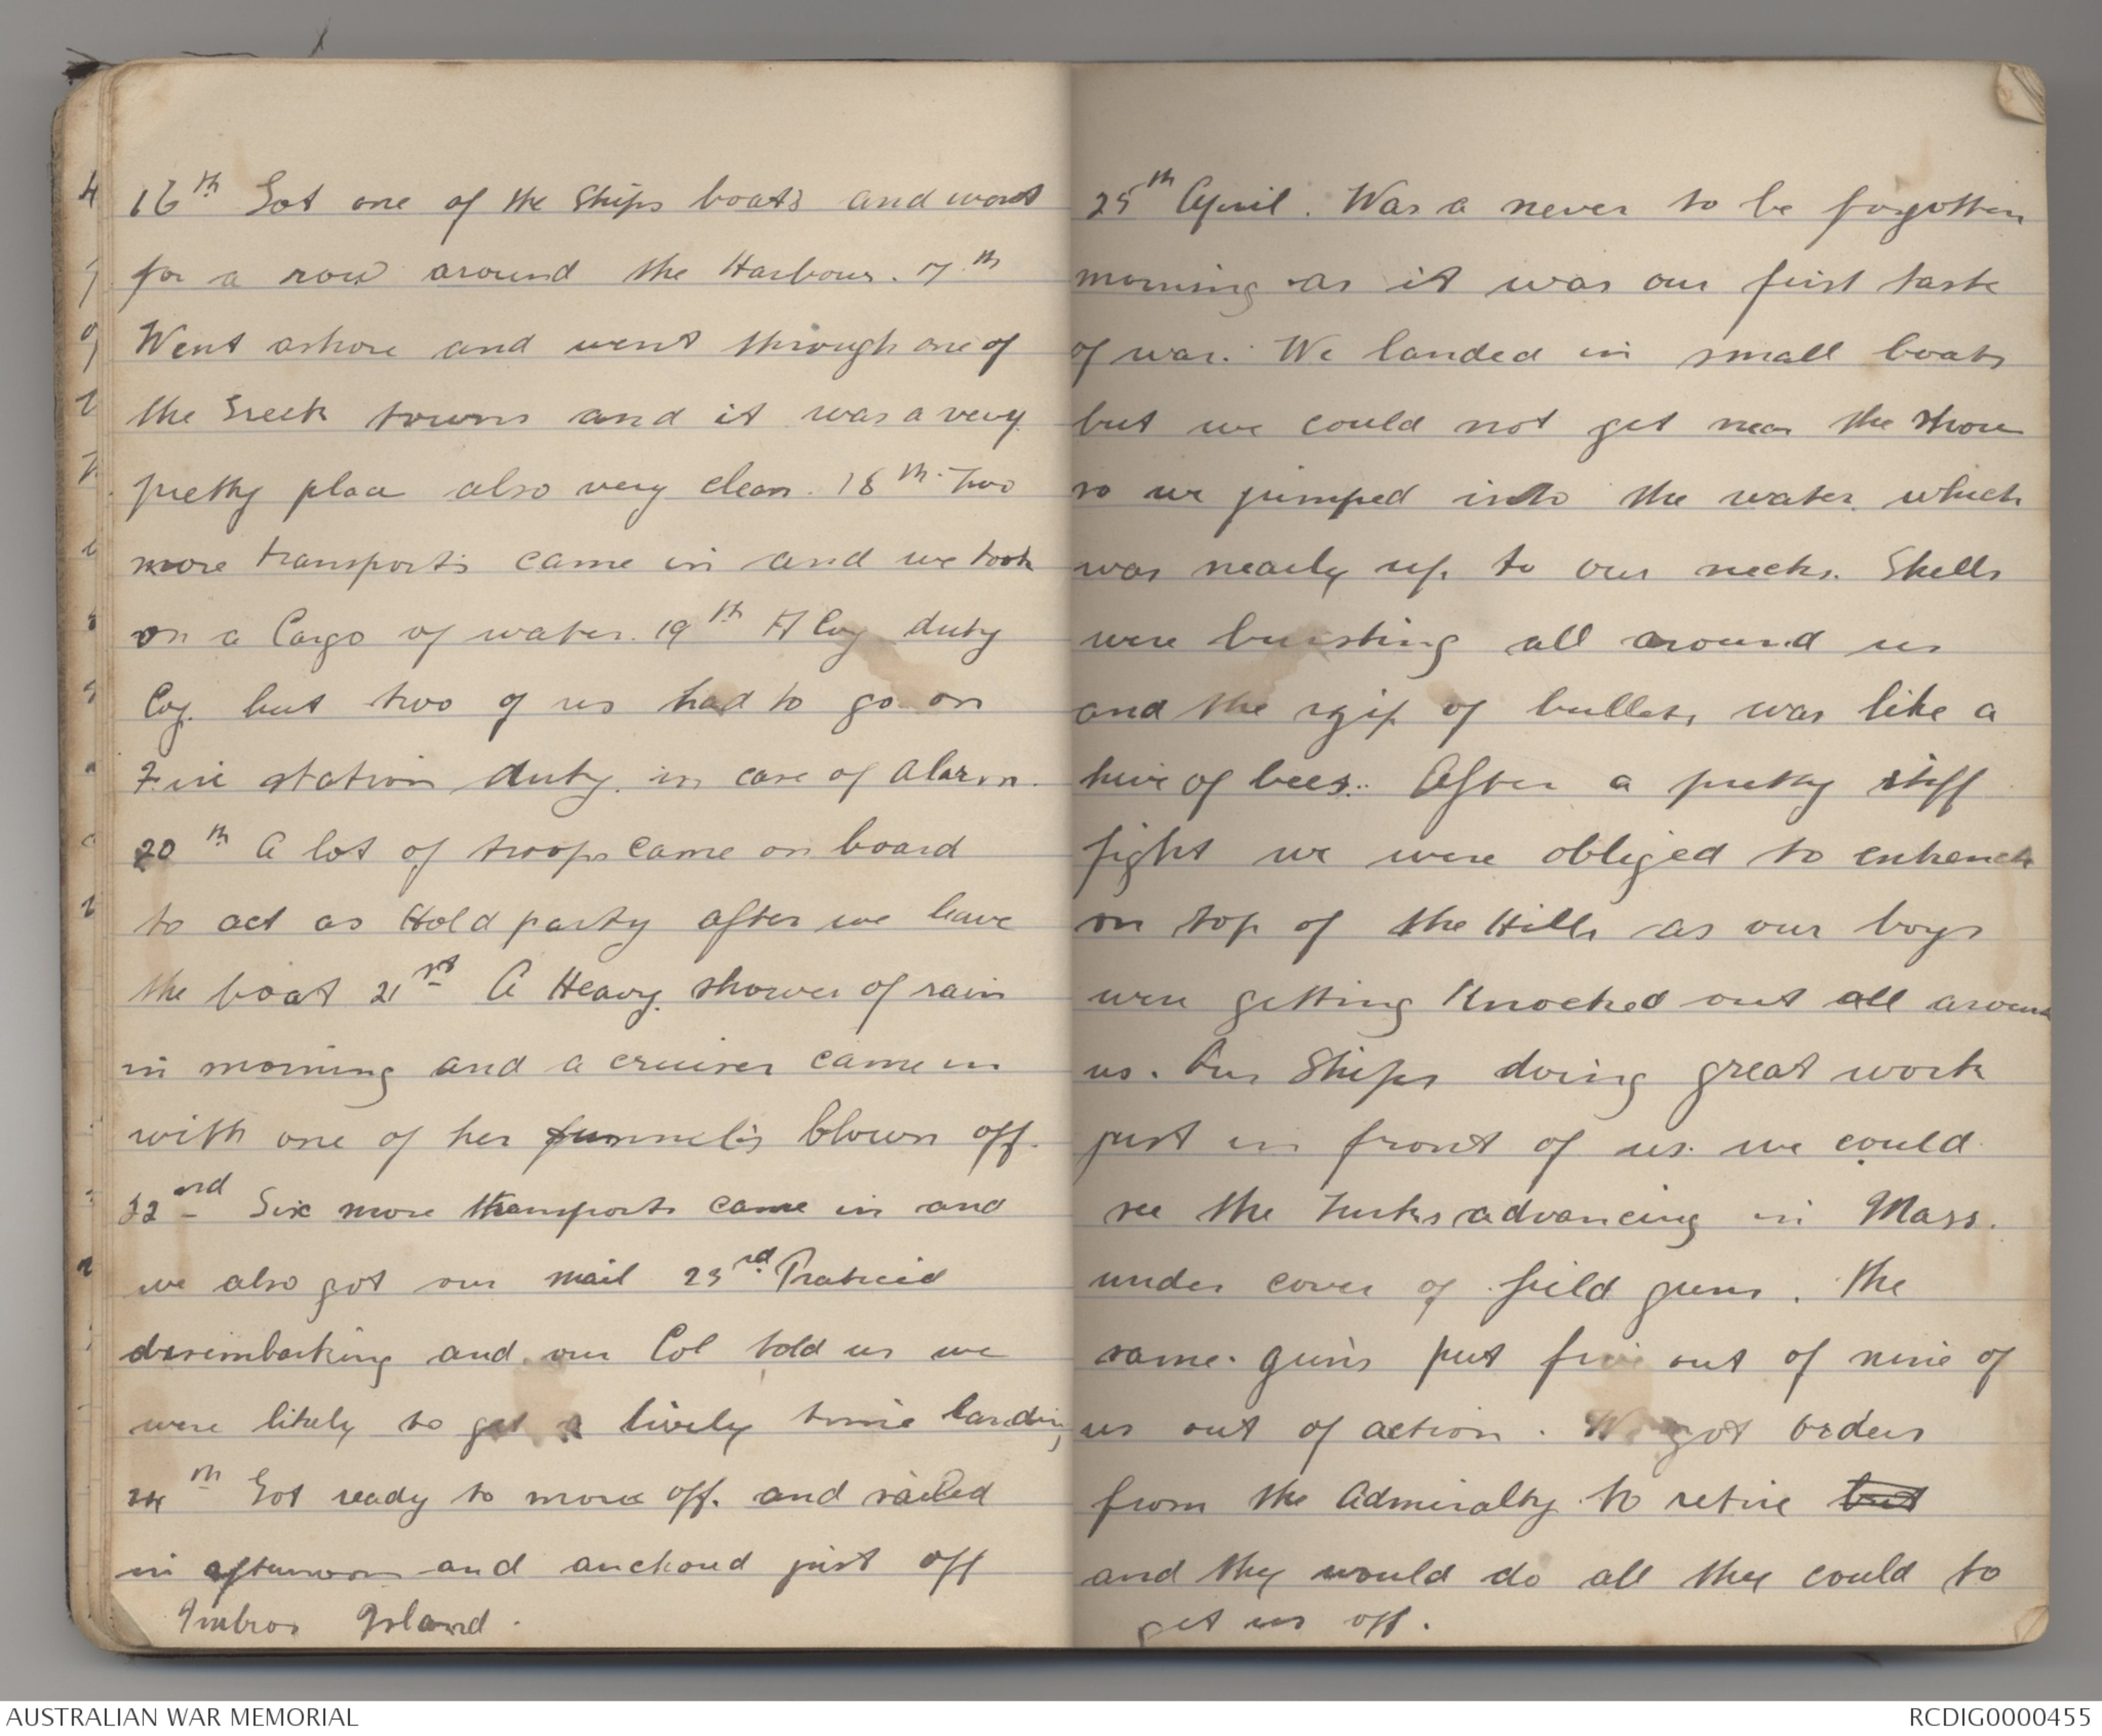 16th Got one of the ships boats and went
for a row around the Harbour. 17th
Went ashore and went through one of
the Greek towns and it was a very
pretty place also very clean. 18th Two
more transports came in and we took
on a Cargo of water. 19th A Coy duty
Coy. but two of us had to go on
Fire station duty in case of alarm.
20th A lot of troops came on board
to act as Hold party after we leave
the boat 21st A Heavy shower of rain
in morning and a cruiser came in
with one of her funnels blown off.
22nd Six more transports came in and
we also got our mail 23rd Praticed
disembarking and our Col told us we
were likely to get a lively time landing
24th Got ready to move off. and sailed
in afternoon and anchored just off
Imbros Island.
25th April. Was a never to be forgotten
morning as it was our first taste
of war. We landed in small boats
but we could not get near the shore
so we jumped into the water which
was nearly up to our necks. Shells
were bursting all around us
and the zip of bullets was like a
hive of bees. After a pretty stiff
fight we were obliged to entrench
on top of the Hills as our boys
were getting Knocked out all around
us. Our Ships doing great work
just in front of us. we could
see the Turks advancing in Mass.
under cover of field guns. The
same guns put five out of nine of
us out of action. We got orders
from the Admiralty to retire but
and they would do all they could to
get us off.
AUSTRALIAN WAR MEMORIAL
RCDIG0000455